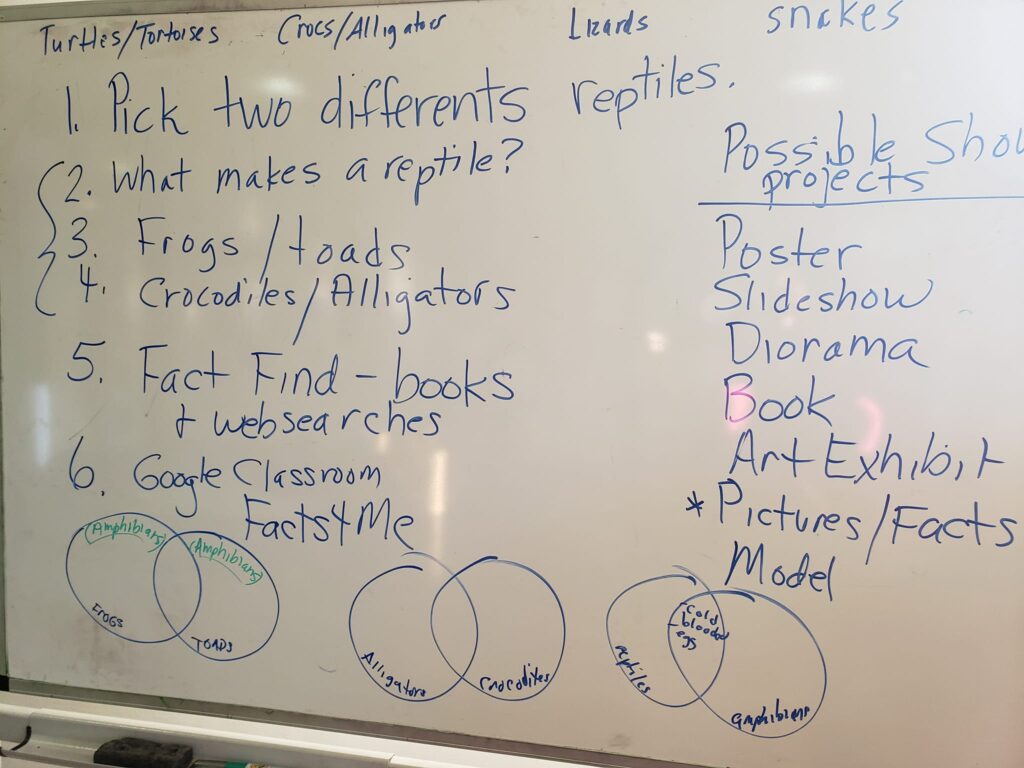 Turtles/Tortoises Crocs/Alligators Lizards snakes
1. Pick two differents reptiles.
2. What makes a reptile?
3. Frogs/toads
4. Crocodiles/Alligators
5. Fact Find - books
+ websearches
6. Google Classroom
Facts4Me
Possible Show
projects
Poster
Slideshow
Diorama
Book
Art Exhibit
* Pictures/Facts
Model
(Amphibians)
(Amphibians)
FROGS
TOADS
Alligators
Crocodiles
- cold
- blooded
egg
reptiles
amphibians